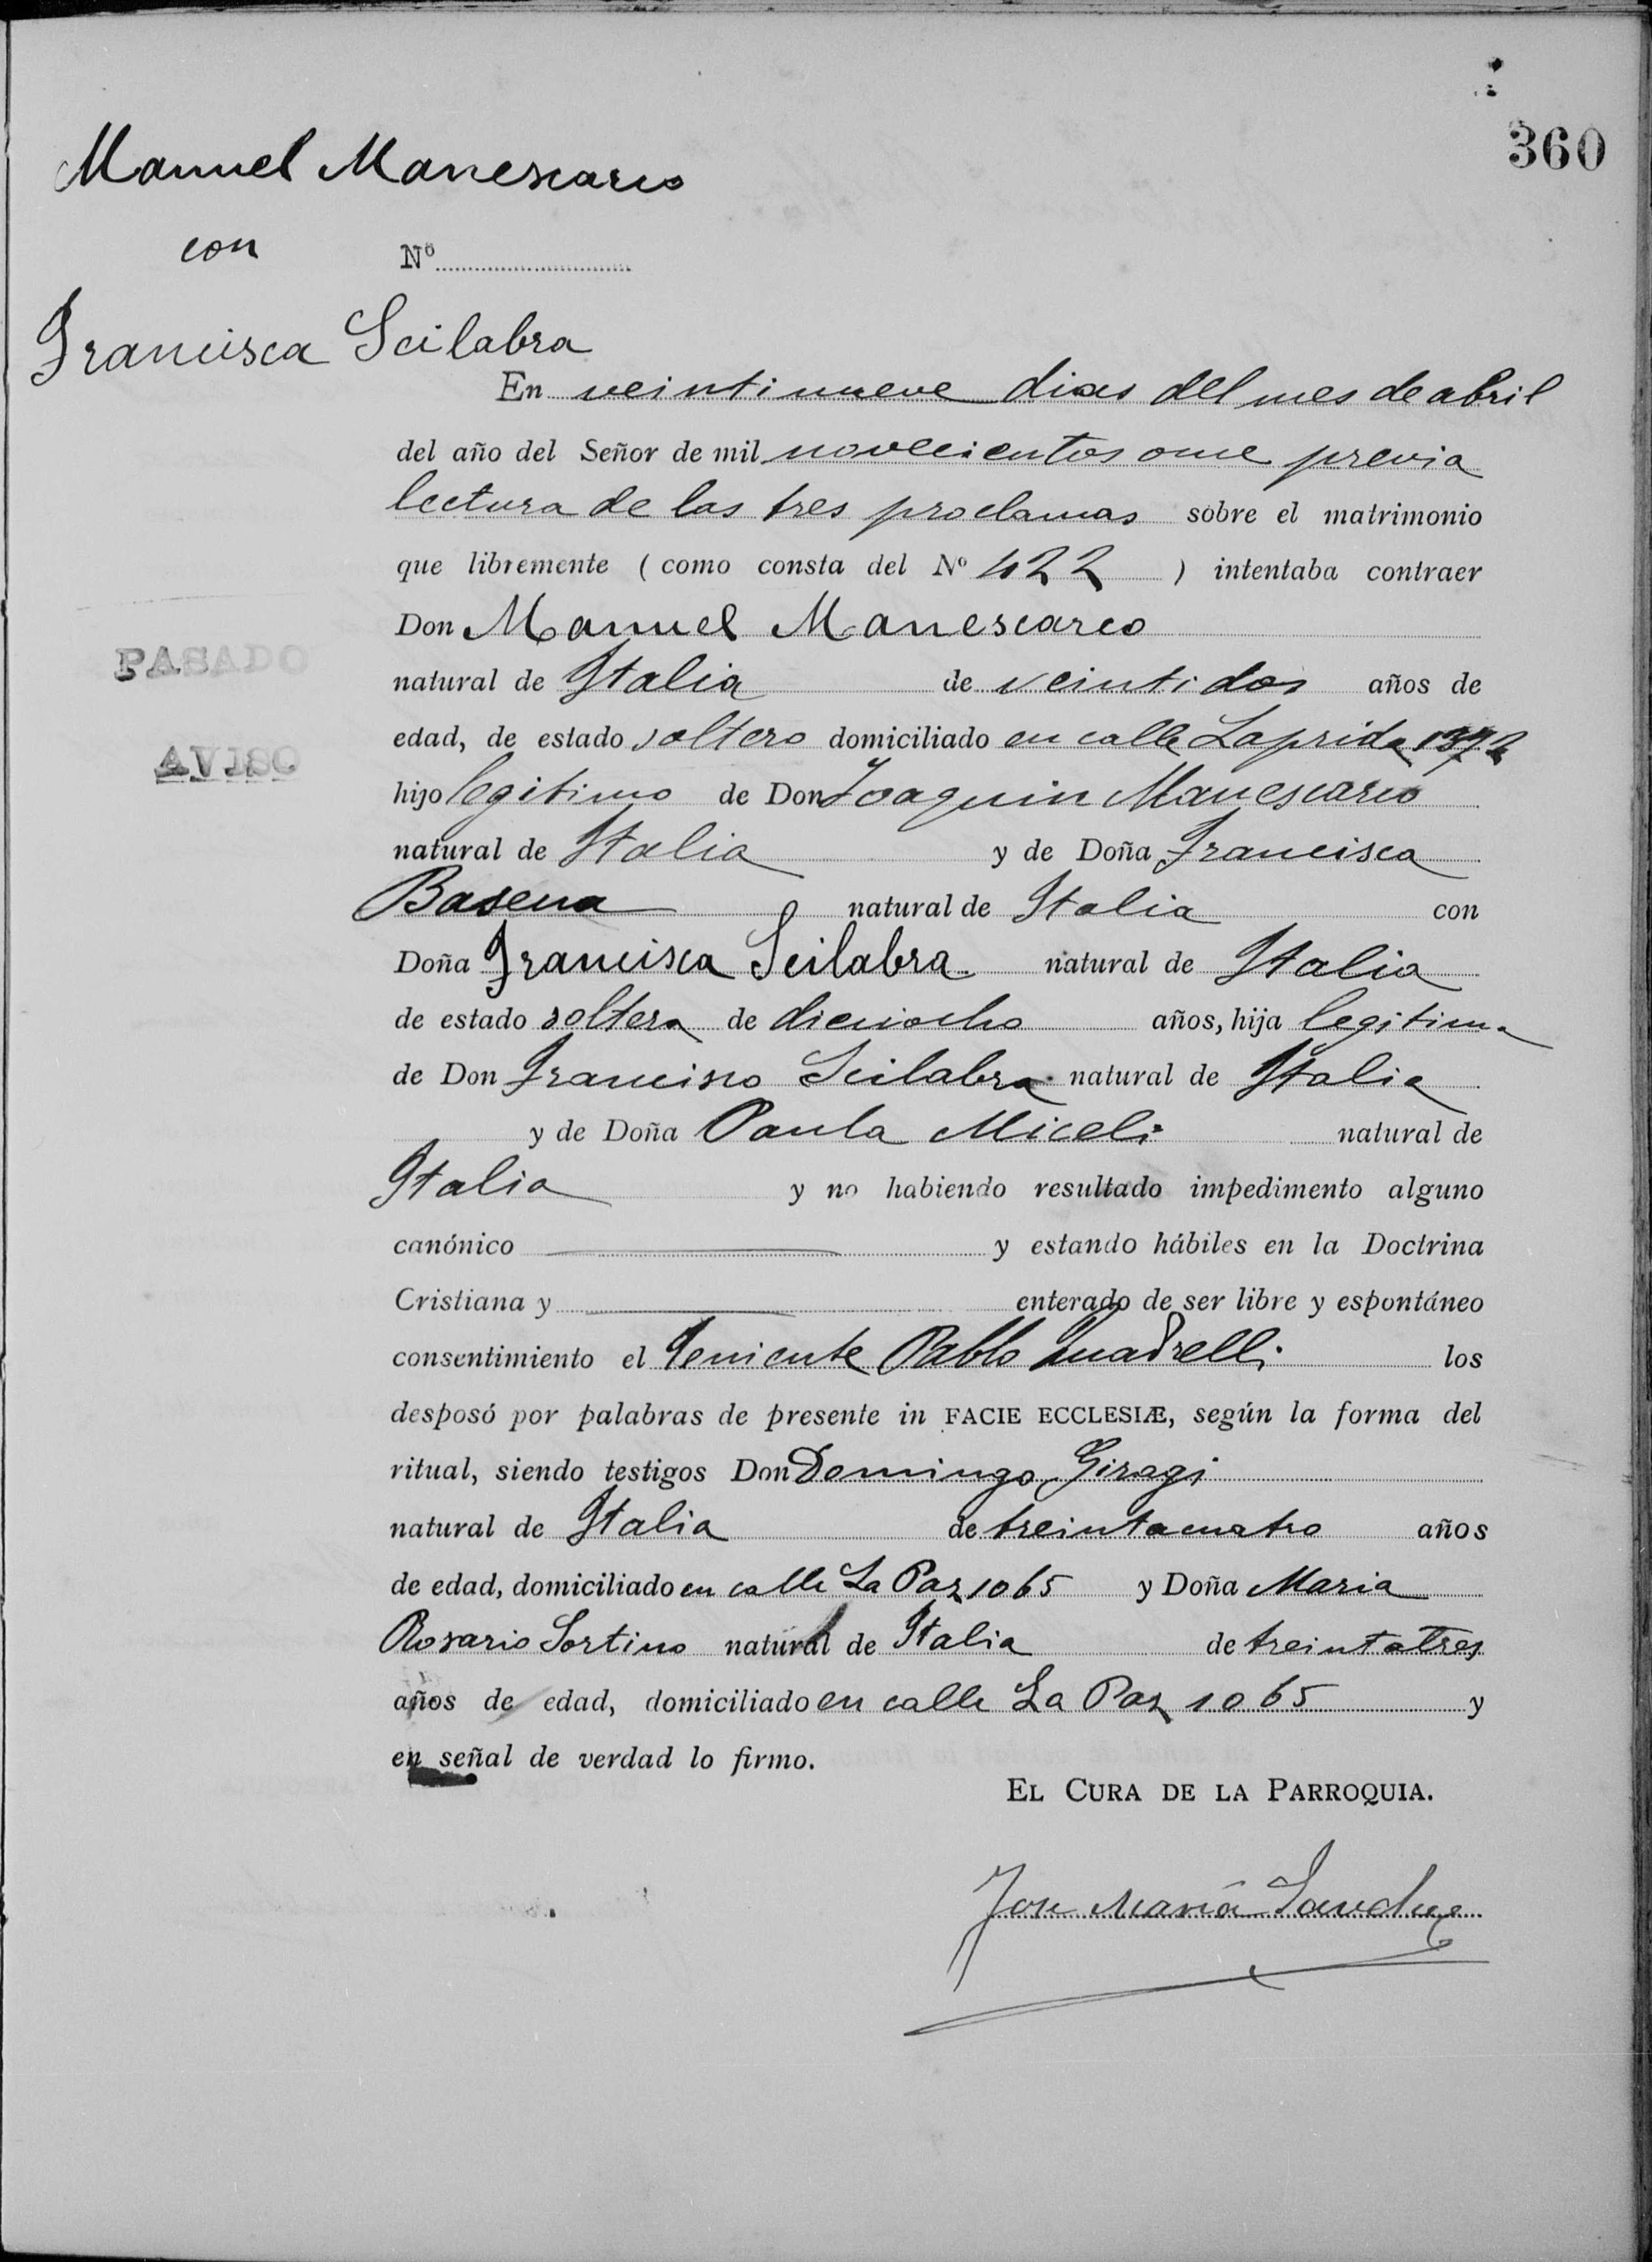 360
Manuel Manescarco
con
Nº
Francisca Scilabra
En veintinueve dias del mes de abril
del año del Señor de mil novecientos once previa
lectura de las tres proclamas sobre el matrimonio
que libremente (como consta del Nº 422 ) intentaba contraer
Don Manuel Manescarco
natural de Italia de veintidos años de
edad, de estado soltero domiciliado en calle Laprida
hijo legitimo de Don Joaquin Manescarco
natural de Italia y de Doña Francisca
Basena natural de Italia con
Doña Francisca Scilabra natural de Italia
de estado soltera de dieciocho años, hija legitima
de Don Francisco Scilabra natural de Italia
y de Doña Paula Miceli natural de
Italia y no habiendo resultado impedimento alguno
canónico y estando hábiles en la Doctrina
Cristiana y enterado de ser libre y espontáneo
consentimiento el Teniente Pablo Quadrelli los
desposó por palabras de presente in FACIE ECCLESIÆ, según la forma del
ritual, siendo testigos Don Domingo Giragi
natural de Italia de treintacuatro años
de edad, domiciliado en calle La Paz 1065 y Doña Maria
Rosario Sortino natural de Italia de treintatres
años de edad, domiciliado en calle La Paz 1065 y
en señal de verdad lo firmo.
EL CURA DE LA PARROQUIA.
Jose María Sanchez
PASADO
AVISO